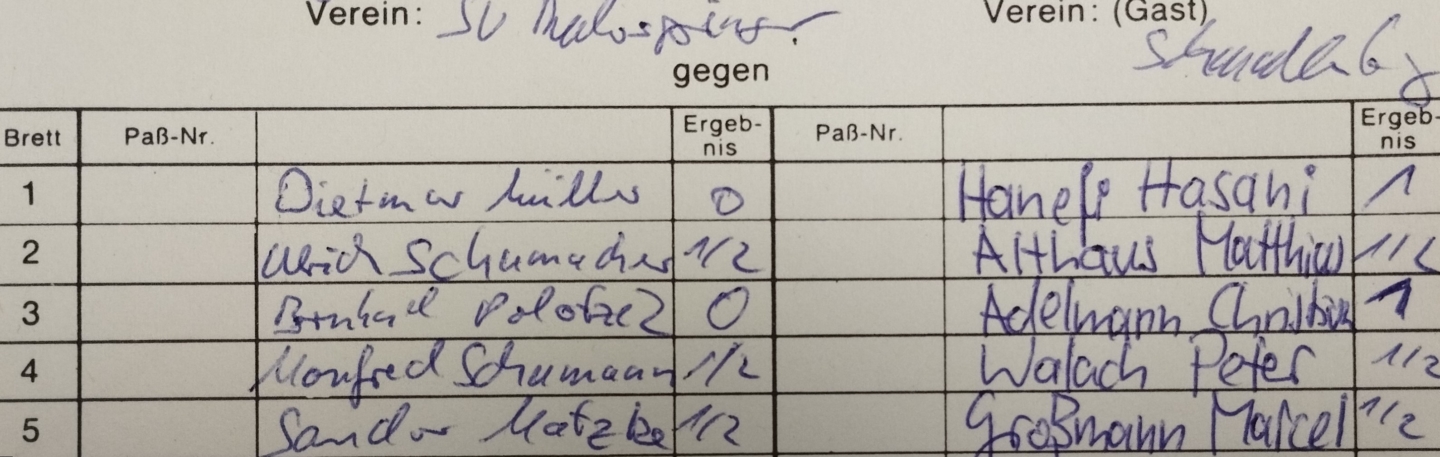 Verein: SV Thalos Verein: (Gast)
gegen
Brett Paß-Nr. Ergeb-nis Paß-Nr. Ergeb-nis
1 Dietmar Müller 0 Hanefi Hasani 1
2 Ulrich Schumacher 1/2 Althaus Matthias 1/2
3 Bernhard 0 Adelmann Christian 1
4 Manfred Schumann 1/2 Walach Peter 1/2
5 Sandor Matzke 1/2 Großmann Marcel 1/2